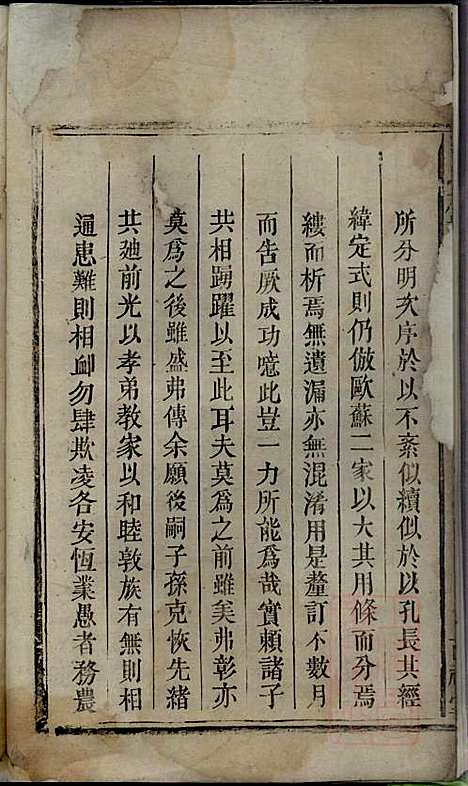 所分明次序於以不紊似續似於以孔長其經
緯定式則仍倣歐蘇二家以大其用條而分焉
縷而析焉無遺漏亦無混淆用是釐訂不數月
而告厥成功噫此豈一力所能為哉實賴諸子
共相踴躍以至此耳夫莫為之前雖美弗彰亦
莫為之後雖盛弗傳余願後嗣子孫克恢先緒
共廸前光以孝弟教家以和睦敦族有無則相
通患難則相卹勿肆欺凌各安恆業愚者務農